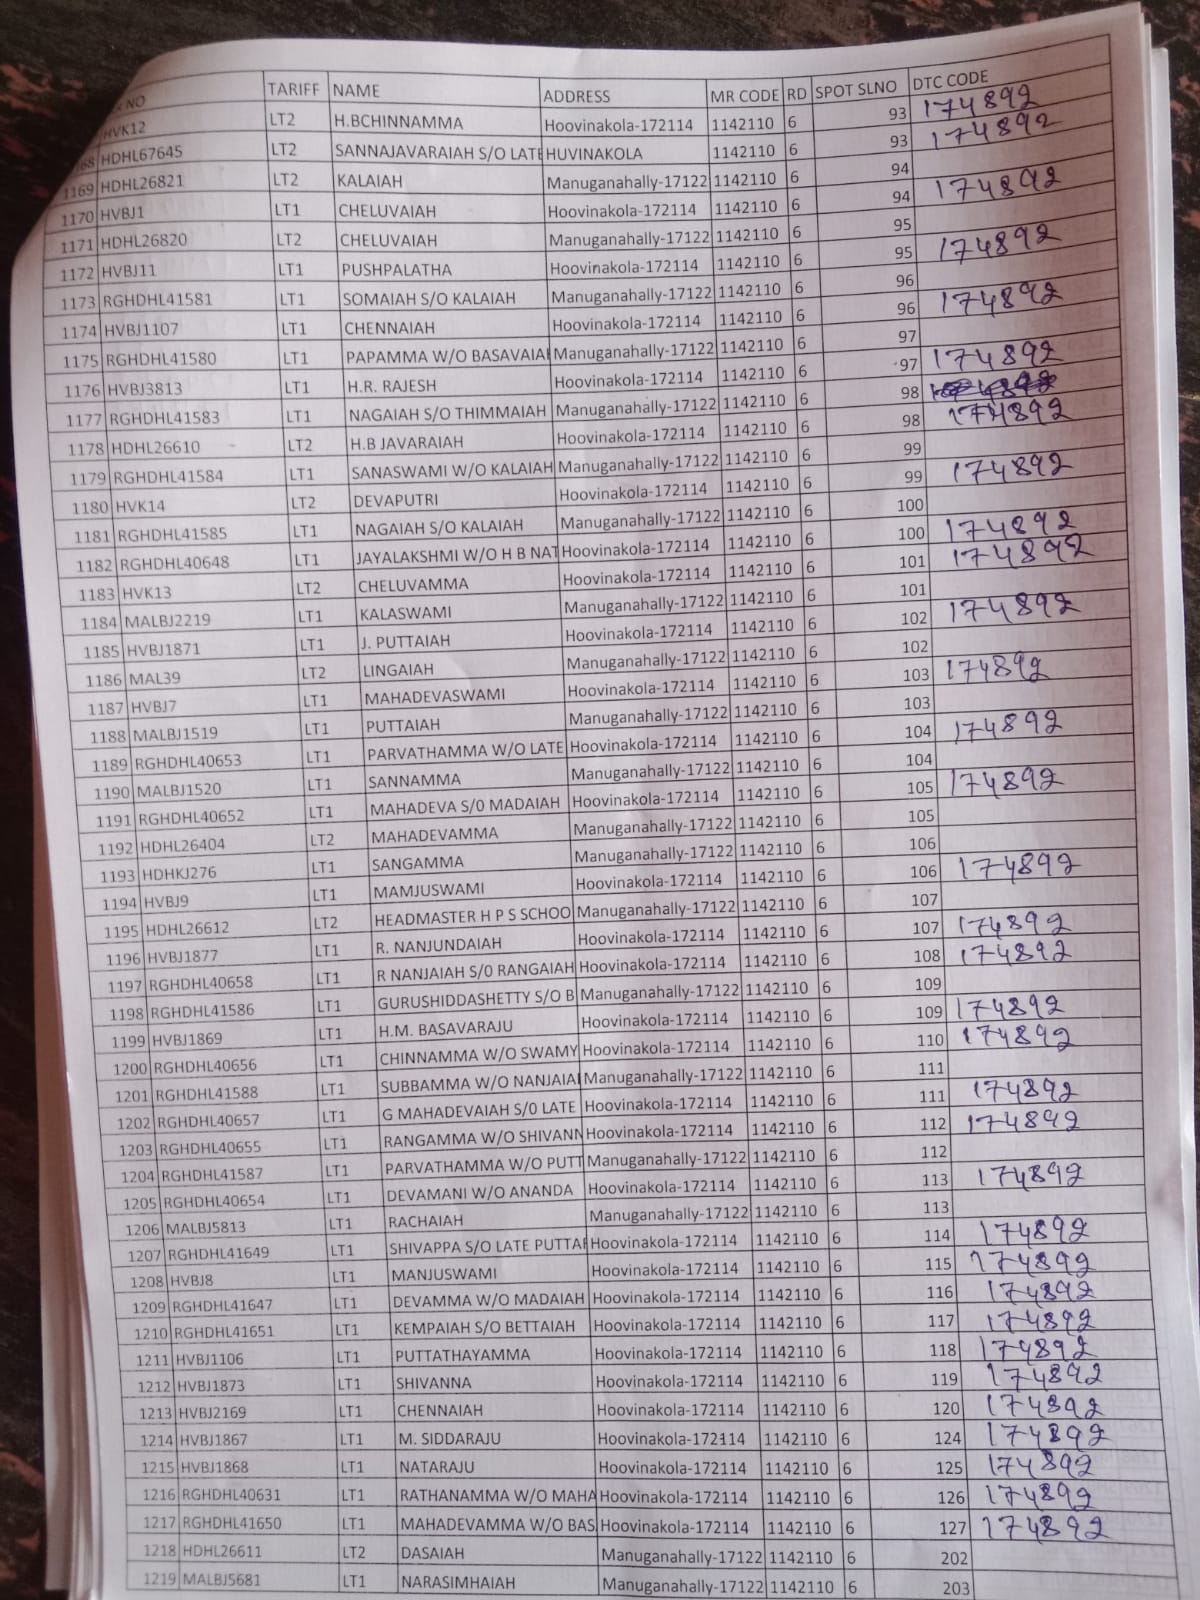 NO TARIFF NAME ADDRESS MR CODE RD SPOT SLNO DTC CODE
HVK12 LT2 H.BCHINNAMMA Hoovinakola-172114 1142110 6 93 174892
68 HDHL67645 LT2 SANNAJAVARAIAH S/O LATE HUVINAKOLA 1142110 6 93 174892
1169 HDHL26821 LT2 KALAIAH Manuganahally-17122 1142110 6 94
1170 HVBJ1 LT1 CHELUVAIAH Hoovinakola-172114 1142110 6 94 174892
1171 HDHL26820 LT2 CHELUVAIAH Manuganahally-17122 1142110 6 95
1172 HVBJ11 LT1 PUSHPALATHA Hoovinakola-172114 1142110 6 95 174892
1173 RGHDHL41581 LT1 SOMAIAH S/O KALAIAH Manuganahally-17122 1142110 6 96
1174 HVBJ1107 LT1 CHENNAIAH Hoovinakola-172114 1142110 6 96 174892
1175 RGHDHL41580 LT1 PAPAMMA W/O BASAVAIAH Manuganahally-17122 1142110 6 97
1176 HVBJ3813 LT1 H.R. RAJESH Hoovinakola-172114 1142110 6 97 174892
1177 RGHDHL41583 LT1 NAGAIAH S/O THIMMAIAH Manuganahally-17122 1142110 6 98
1178 HDHL26610 LT2 H.B JAVARAIAH Hoovinakola-172114 1142110 6 98 174892
1179 RGHDHL41584 LT1 SANASWAMI W/O KALAIAH Manuganahally-17122 1142110 6 99
1180 HVK14 LT2 DEVAPUTRI Hoovinakola-172114 1142110 6 99 174892
1181 RGHDHL41585 LT1 NAGAIAH S/O KALAIAH Manuganahally-17122 1142110 6 100
1182 RGHDHL40648 LT1 JAYALAKSHMI W/O H B NAT Hoovinakola-172114 1142110 6 100 174892
1183 HVK13 LT2 CHELUVAMMA Hoovinakola-172114 1142110 6 101 174892
1184 MALBJ2219 LT1 KALASWAMI Manuganahally-17122 1142110 6 101
1185 HVBJ1871 LT1 J. PUTTAIAH Hoovinakola-172114 1142110 6 102 174892
1186 MAL39 LT2 LINGAIAH Manuganahally-17122 1142110 6 102
1187 HVBJ7 LT1 MAHADEVASWAMI Hoovinakola-172114 1142110 6 103 174892
1188 MALBJ1519 LT1 PUTTAIAH Manuganahally-17122 1142110 6 103
1189 RGHDHL40653 LT1 PARVATHAMMA W/O LATE Hoovinakola-172114 1142110 6 104 174892
1190 MALBJ1520 LT1 SANNAMMA Manuganahally-17122 1142110 6 104
1191 RGHDHL40652 LT1 MAHADEVA S/0 MADAIAH Hoovinakola-172114 1142110 6 105 174892
1192 HDHL26404 LT2 MAHADEVAMMA Manuganahally-17122 1142110 6 105
1193 HDHKJ276 LT1 SANGAMMA Manuganahally-17122 1142110 6 106
1194 HVBJ9 LT1 MAMJUSWAMI Hoovinakola-172114 1142110 6 106 174892
1195 HDHL26612 LT2 HEADMASTER H P S SCHOO Manuganahally-17122 1142110 6 107
1196 HVBJ1877 LT1 R. NANJUNDAIAH Hoovinakola-172114 1142110 6 107 174892
1197 RGHDHL40658 LT1 R NANJAIAH S/0 RANGAIAH Hoovinakola-172114 1142110 6 108 174892
1198 RGHDHL41586 LT1 GURUSHIDDASHETTY S/O B Manuganahally-17122 1142110 6 109
1199 HVBJ1869 LT1 H.M. BASAVARAJU Hoovinakola-172114 1142110 6 109 174892
1200 RGHDHL40656 LT1 CHINNAMMA W/O SWAMY Hoovinakola-172114 1142110 6 110 174892
1201 RGHDHL41588 LT1 SUBBAMMA W/O NANJAIAH Manuganahally-17122 1142110 6 111
1202 RGHDHL40657 LT1 G MAHADEVAIAH S/0 LATE Hoovinakola-172114 1142110 6 111 174892
1203 RGHDHL40655 LT1 RANGAMMA W/O SHIVANN Hoovinakola-172114 1142110 6 112 174892
1204 RGHDHL41587 LT1 PARVATHAMMA W/O PUTT Manuganahally-17122 1142110 6 112
1205 RGHDHL40654 LT1 DEVAMANI W/O ANANDA Hoovinakola-172114 1142110 6 113 174892
1206 MALBJ5813 LT1 RACHAIAH Manuganahally-17122 1142110 6 113
1207 RGHDHL41649 LT1 SHIVAPPA S/O LATE PUTTAI Hoovinakola-172114 1142110 6 114 174892
1208 HVBJ8 LT1 MANJUSWAMI Hoovinakola-172114 1142110 6 115 174892
1209 RGHDHL41647 LT1 DEVAMMA W/O MADAIAH Hoovinakola-172114 1142110 6 116 174892
1210 RGHDHL41651 LT1 KEMPAIAH S/O BETTAIAH Hoovinakola-172114 1142110 6 117 174892
1211 HVBJ1106 LT1 PUTTATHAYAMMA Hoovinakola-172114 1142110 6 118 174892
1212 HVBJ1873 LT1 SHIVANNA Hoovinakola-172114 1142110 6 119 174892
1213 HVBJ2169 LT1 CHENNAIAH Hoovinakola-172114 1142110 6 120 174892
1214 HVBJ1867 LT1 M. SIDDARAJU Hoovinakola-172114 1142110 6 124 174892
1215 HVBJ1868 LT1 NATARAJU Hoovinakola-172114 1142110 6 125 174892
1216 RGHDHL40631 LT1 RATHANAMMA W/O MAHA Hoovinakola-172114 1142110 6 126 174892
1217 RGHDHL41650 LT1 MAHADEVAMMA W/O BAS Hoovinakola-172114 1142110 6 127 174892
1218 HDHL26611 LT2 DASAIAH Manuganahally-17122 1142110 6 202
1219 MALBJ5681 LT1 NARASIMHAIAH Manuganahally-17122 1142110 6 203